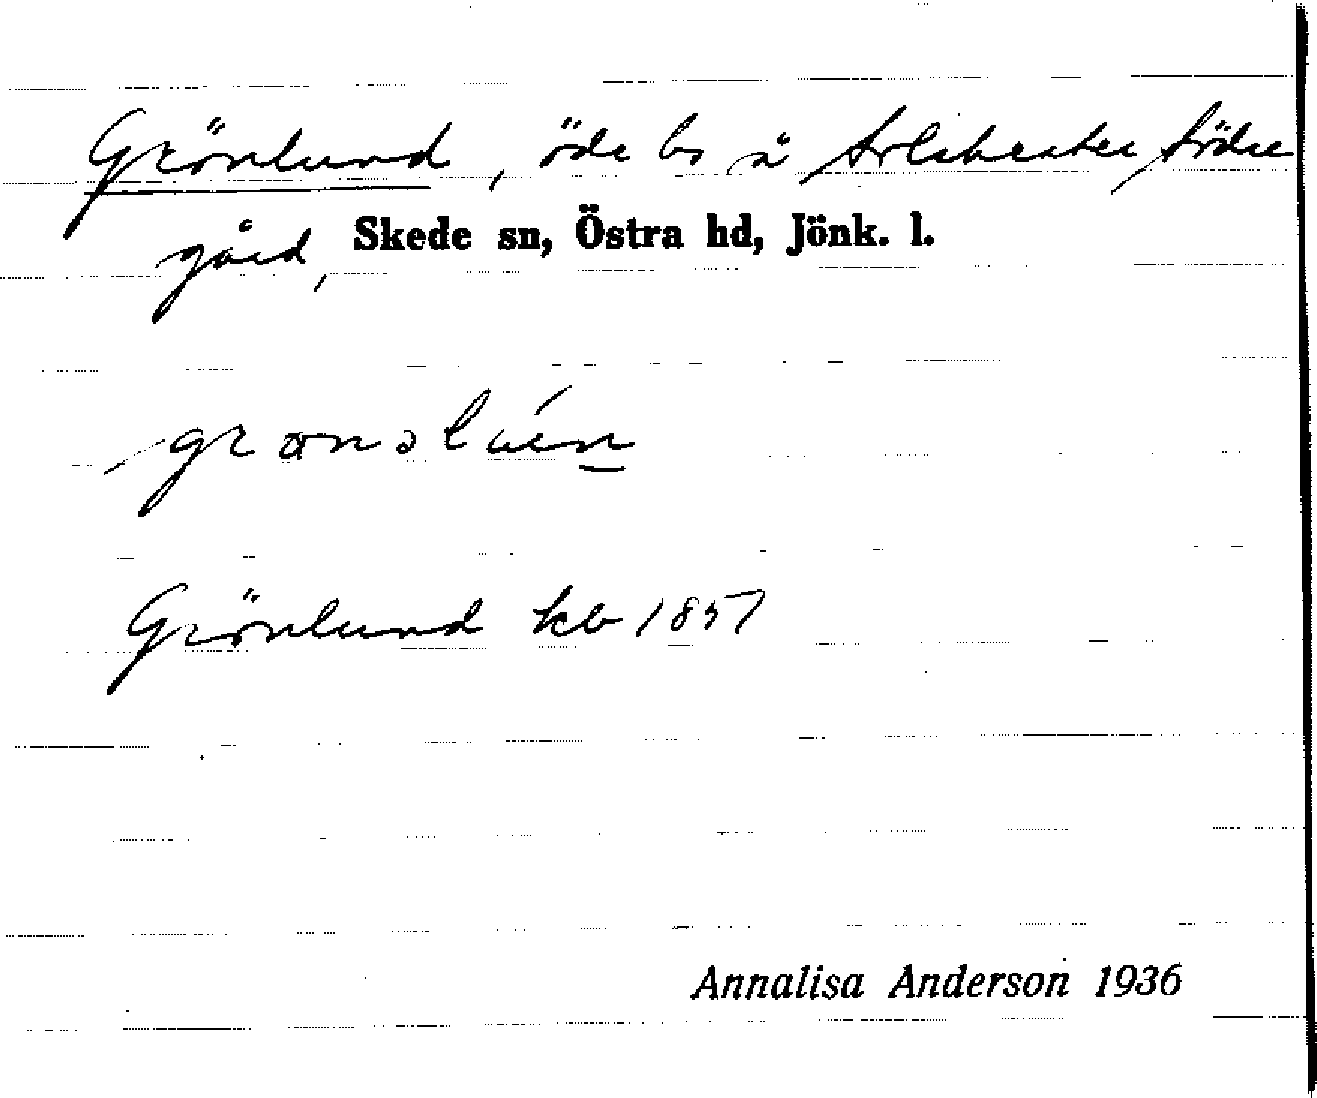 Grönlund, öde bs å Södre
gård, Skede sn, Östra hd, Jönk. l.
Grönlund kb 1857
Annalisa Anderson 1936